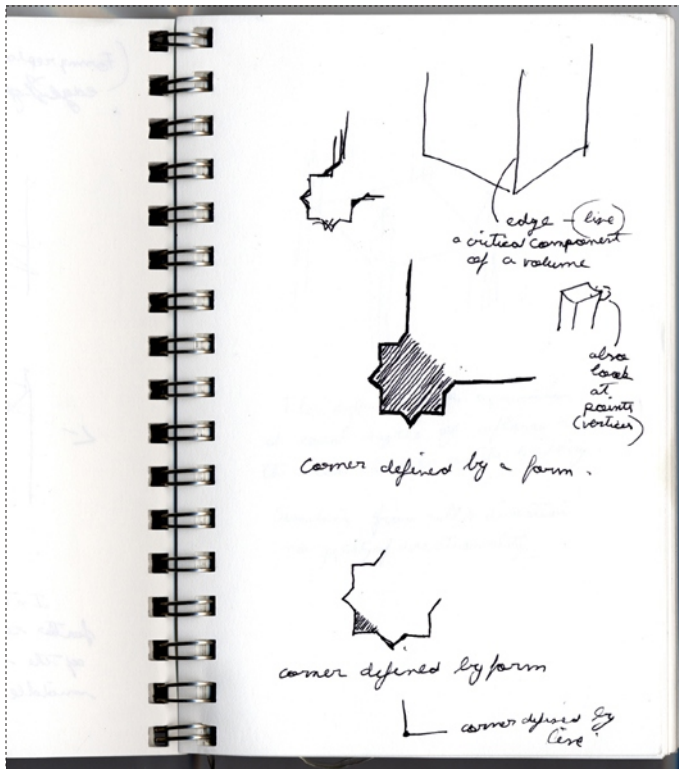 edge - line
a critical component
of a volume
also
look
at
points
(vertices)
corner defined by a form.
corner defined by form
corner defined by
line.